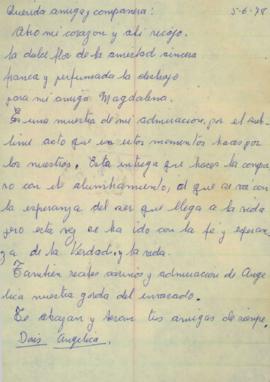 Querida amiga y compañera: 5-6-78
Abro mi corazon y ahi recojo
la dulce flor de la amistad sincera
franca y perfumada la deshojo
para mi amiga Magdalena.
Es una muestra de mi admiracion, por el sub-
lime acto que en estos momentos haces por
los nuestros. Esta entrega que haces la compa
ro con el alumbramiento, al que se va con
la esperanza del ser que llega a la vida
pero esta vez se ha ido con la fe y esperan
za de la Verdad, y la vida.
Tambien recibe cariños y admiracion de Ange
lica nuestra gorda del envasado.
Te abrazan y seran tus amigas de siempre.
Doris Angelica.